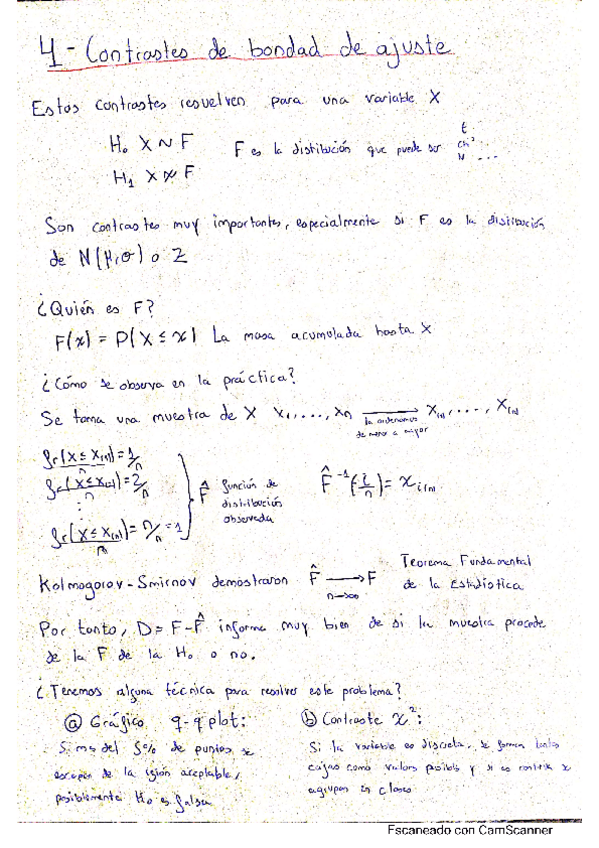 4 - Contrastes de bondad de ajuste
Estos contrastes resuelven para una variable X
H₀ X ~ F
H₁ X ≁ F
F es la distibución que puede ser t ch² N ...
Son contrastes muy importantes, especialmente si F es la distribución
de N(μ,σ) o Z
¿Quién es F?
F(x) = P(X ≤ x) La masa acumulada hasta X
¿Cómo se observa en la práctica?
Se toma una muestra de X X₁,...,Xₙ → X₍₁₎,...,X₍ₙ₎
la ordenamos
de menor a mayor
fr(X ≤ X₍₁₎)/n = 1/n
fr(X ≤ X₍₂₎)/n = 2/n
⋮
fr(X ≤ X₍ₙ₎)/n = n/n = 1
F̂ función de
distribución
observada
F̂⁻¹(i/n) = x
Kolmogorov - Smirnov demostraron F̂ → F
n→∞
Teorema Fundamental
de la Estadística
Por tanto, D = F - F̂ informa muy bien de si la muestra procede
de la F de la H₀ o no.
¿Tenemos alguna técnica para resolver este problema?
ⓐ Gráfico q-q plot:
Si más del 5% de puntos se
escapan de la aceptable,
posiblemente H₀ es falsa
ⓑ Contraste χ²:
Si la variable es discreta, se forman tantas
cajas como valores posibles y si es se
agrupan en clases
Escaneado con CamScanner